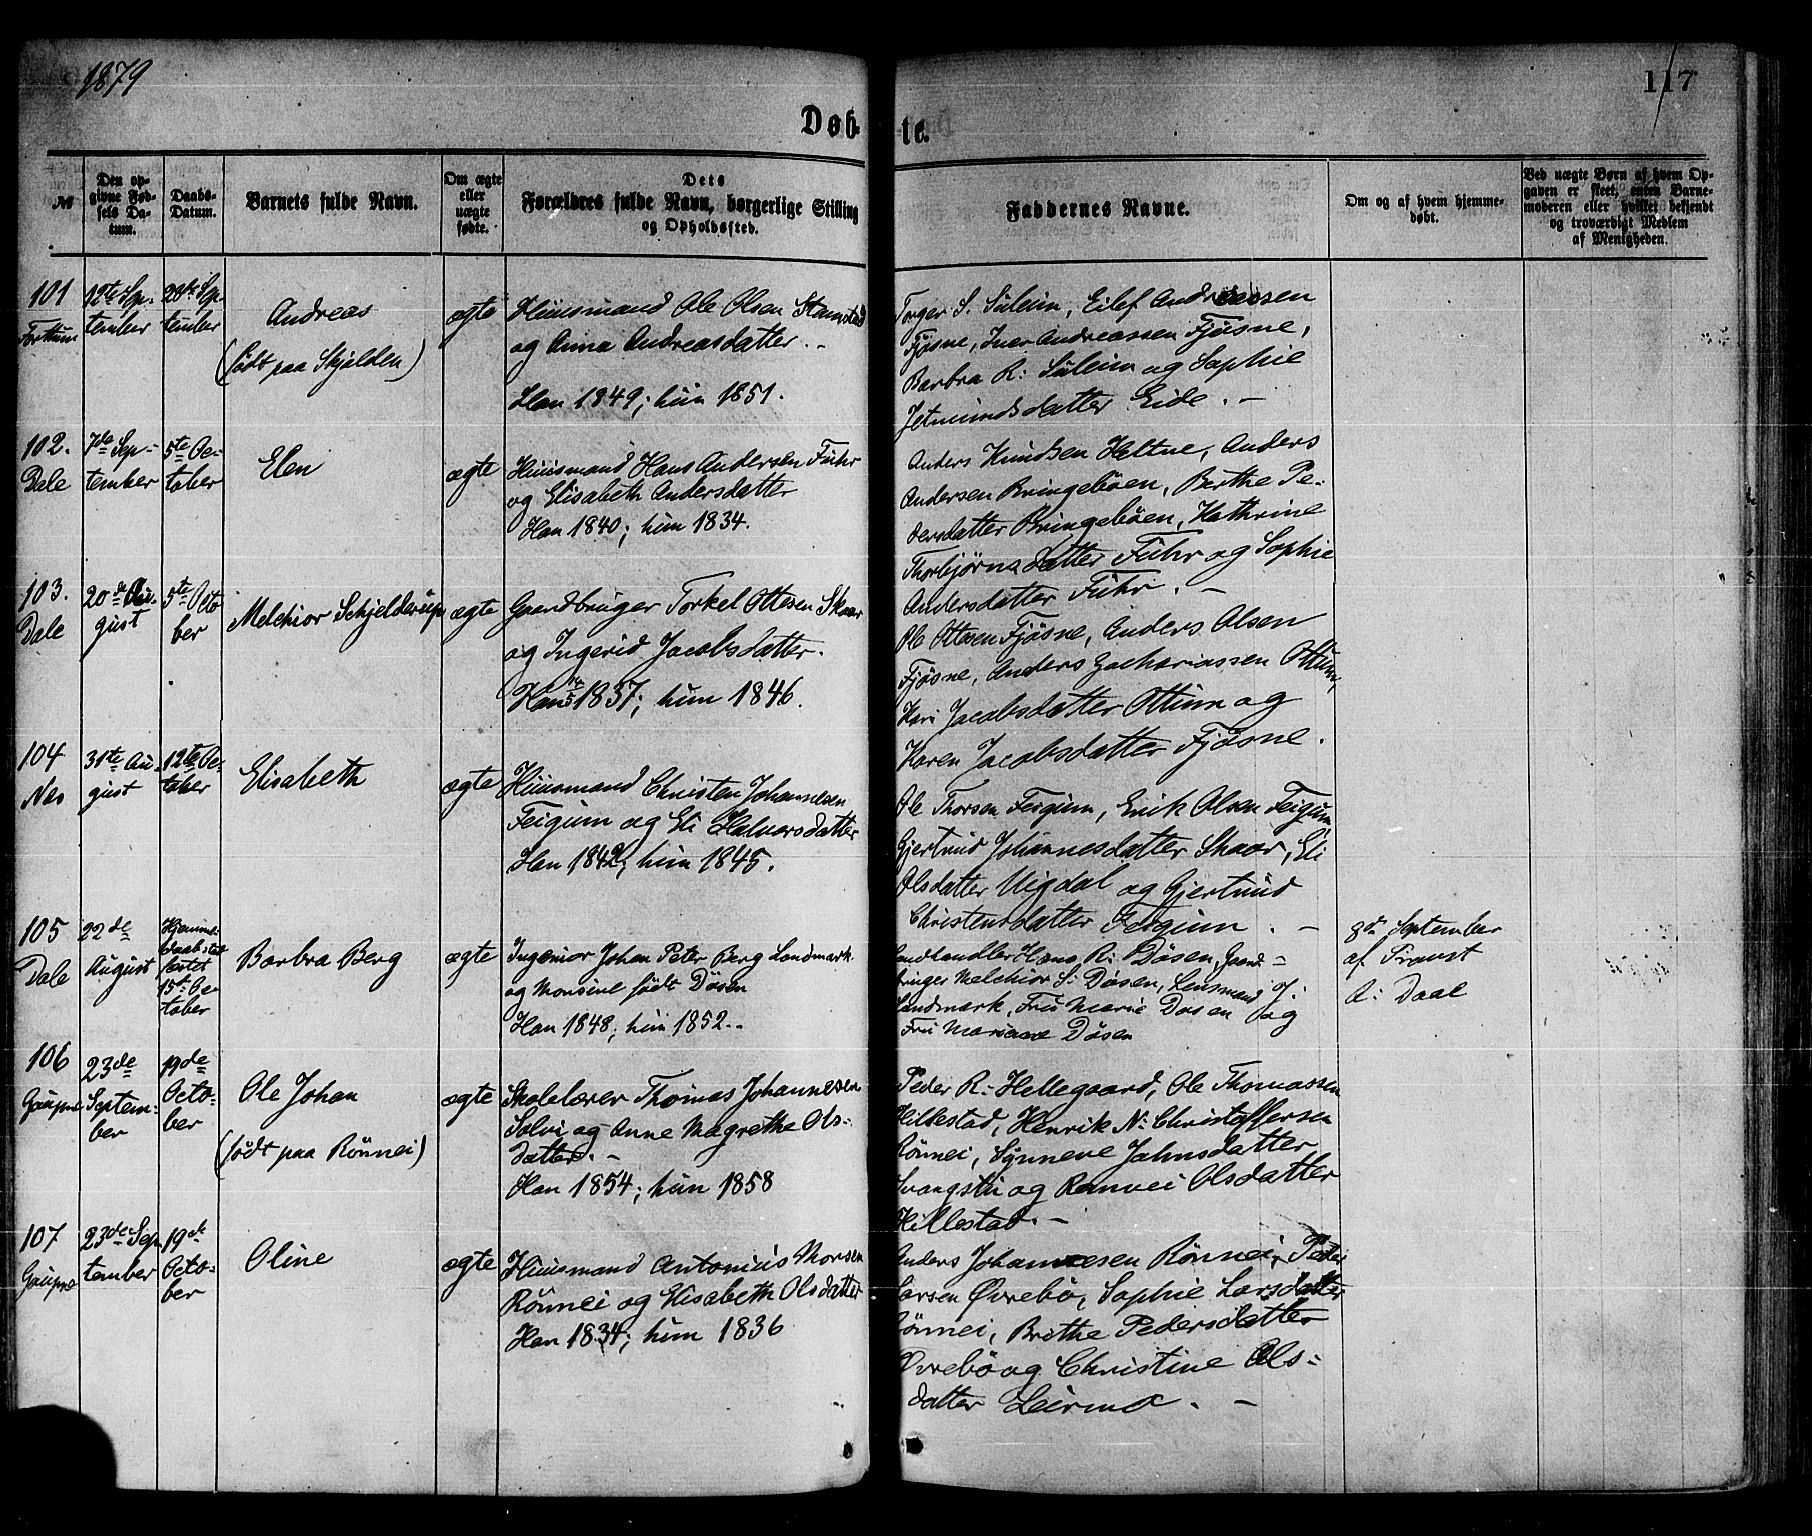 1879
117
Døb-
te.
№
Den op-
givne Fød-
sels Da-
tum.
Daabs-
Datum.
Barnets fulde Navn.
Om ægte
eller
uægte
fødte.
Dets
Forældres fulde Navn, borgerlige Stilling
og Opholdssted.
Faddernes Navne.
Om og af hvem hjemme-
døbt.
Ved uægte Børn af hvem Op-
gaven er skeet, enten Barne-
moderen eller hvilket bekjendt
og troværdigt Medlem
af Menigheden.
101
Forttun
12te Sep-
tember
28de Sep-
tember
Andreas
(født paa Skjolden)
ægte
Huusmand Ole Olsen Stamstad
og Anna Andreasdatter.
Han 1849; hun 1851.
Torger S. Süleim, Eilef Andreassen
Fjøsne, Iver Andreassen Fjøsne,
Barbra R: Süleim og Sophie
Jetmundsdatter Eide. -
102.
Dale
7de Sep-
tember
5te Oc-
tober
Elen
ægte
Huusmand Hans Andersen Fuhr
og Elisabeth Andersdatter
Han 1840; hun 1834.
Anders Knudsen Heltne, Anders
Andersen Bringebøen, Berthe Pe-
dersdatter Bringebøen, Kathrine
Thorbjørnsdatter Fuhr og Sophie
Andersdatter Fuhr. -
103.
Dale
20de Au-
gust
5te Octo
ber
Melchior Schjelderup
ægte
Gaardbruger Torkel Ottesen Skaar
og Ingerid Jacobsdatter.
Han 1837; hun 1846.
Ole Ottesen Fjøsne, Anders Olsen
Fjøsne, Anders Zachariassen Ottum,
Kari Jacobsdatter Ottum og
Karen Jacobsdatter Fjøsne.
104
Nes
31te Au-
gust
12te Oc-
tober
Elisabeth
ægte
Huusmand Christen Johannesen
Feigum og Eli Halvorsdatter
Han 1842; hun 1845.
Ole Thorsen Feigum, Erik Olsen Feigum
Gjertrud Johannesdatter Skaar, Eli
Olsdatter Uigdal og Gjertrud
Christensdatter Feigum. -
105
Dale
22de
August
Hjemme-
daab stad-
fæstet
15de Oc-
tober
Barbra Berg
ægte
Ingeniør Johan Peter Berg Landmark
og Monsine født Døsen
Han 1848; hun 1852.
Landhandler Hans R: Døsen, Gaard-
bruger Melchior S: Døsen, Lensmand J:
Landmark, Fru Marie Døsen og
Fru Mariane Døsen
8de September
af Provst
A: Daae
106
Gaupne
23de
Septem-
ber
19de
Octo-
ber
Ole Johan
(født paa Rønnei)
ægte
Skolelærer Thomas Johannesen
Solvi og Anne Magrethe Ols-
datter. -
Han 1854; hun 1858
Peder R: Hellegaard, Ole Thomassen
Hillestad, Henrik N: Christoffersen
Rønnei, Synneve Jahnsdatter
Svangstu og Ranvei Olsdatter
Hillestad. -
107
Gaupne
23de Sep
tember
19de
Octo-
ber
Oline
ægte
Huusmand Antonius Thorsen
Rønnei og Elisabeth Olsdatter
Han 1834; hun 1836
Anders Johannesen Rønnei, Peder
Larsen Øvrebø, Sophie Larsdatter
Rønnei, Brethe Pedersdatter
Øvrebø og Christine Ols-
datter Leirmo. -